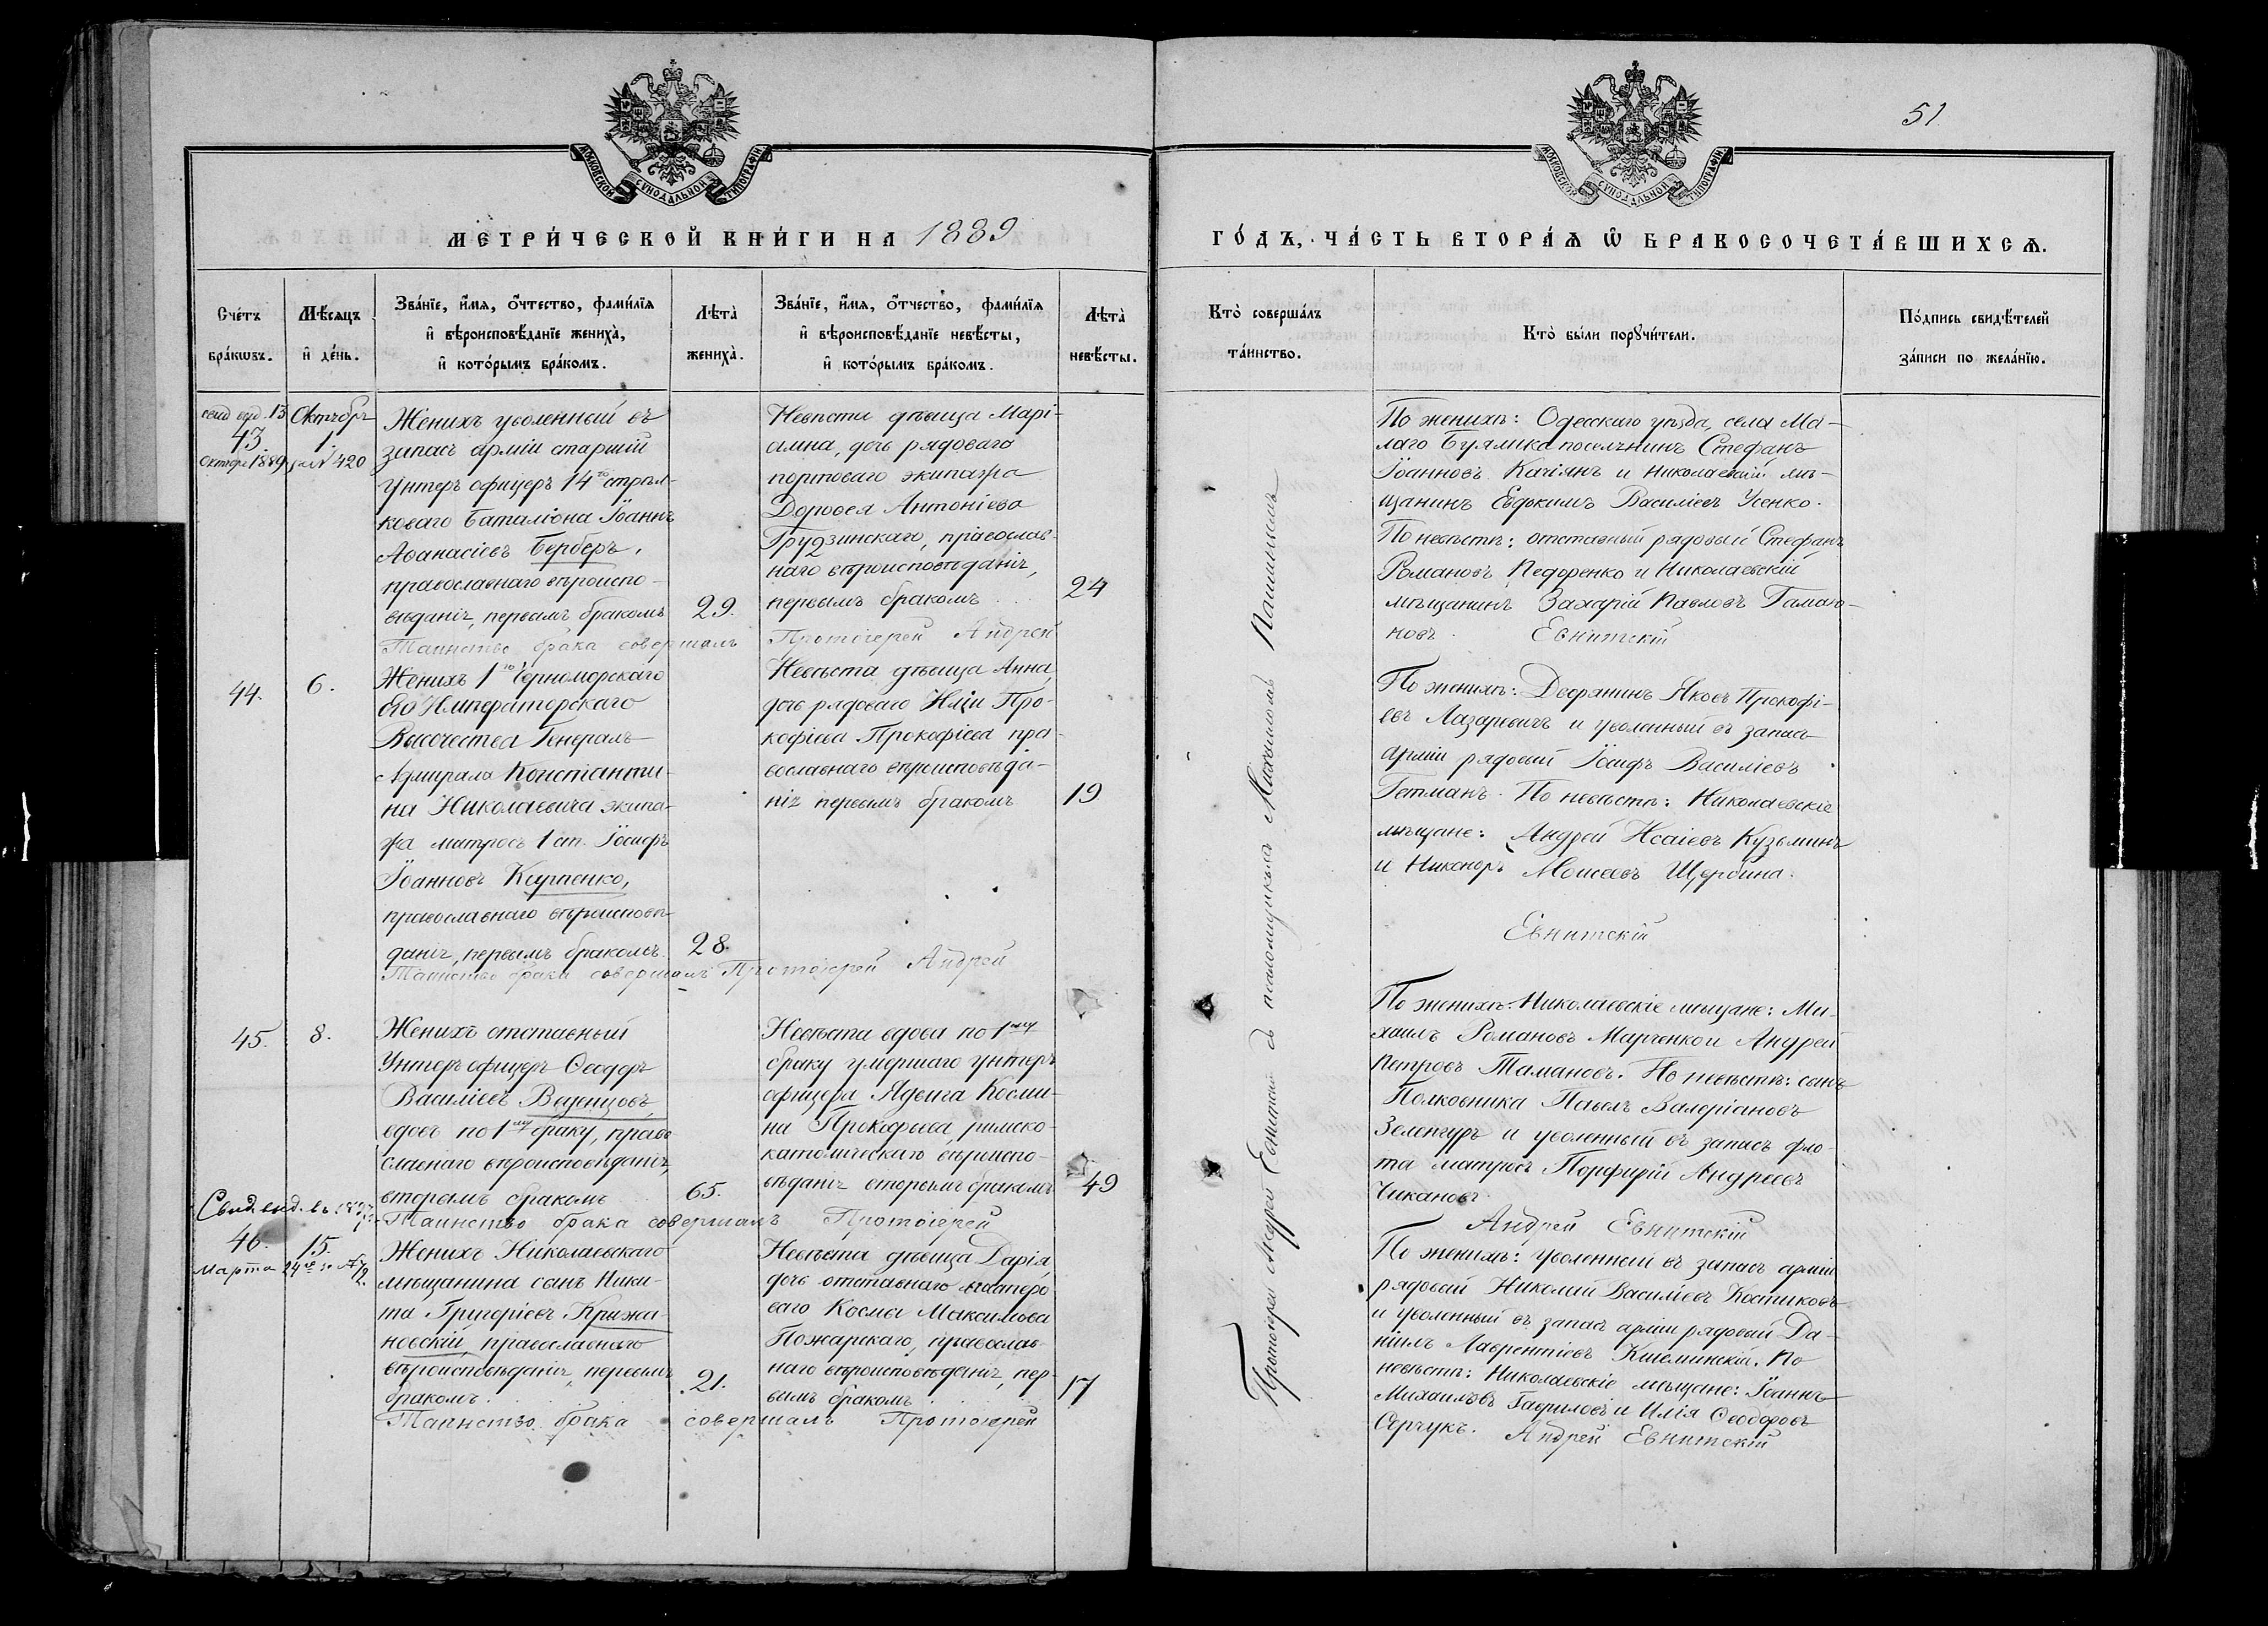 51
МОСКОВСКОЙ СУНОДАЛЬНОЙ ТИПОГРАФІИ
МОСКОВСКОЙ СУНОДАЛЬНОЙ ТИПОГРАФІИ
МЕТРИ́ЧЕСКОЙ КНИ́ГИ НА 1889
ГО́ДЪ, ЧА́СТЬ ВТОРА́Ѧ Ѽ БРАКОСОЧЕТА́ВШИХСѦ.
Сче́тъ бра́кѡвъ.
Мѣ́сяцъ и҆ де́нь.
Зва́нїе, и҆́мя, о҆́тчество, фами́лїя
и҆ вѣроисповѣ́данїе жениха̀,
и҆ кото́рымъ бра́комъ.
Лѣта̀ жениха̀.
Зва́нїе, и҆́мя, о҆́тчество, фами́лїя
и҆ вѣроисповѣ́данїе невѣ́сты,
и҆ кото́рымъ бра́комъ.
Лѣта̀ невѣ́сты.
Кто̀ соверша́лъ та́инство.
Кто̀ бы́ли порꙋчи́тели.
По́дпись свидѣ́телей за́писи по жела́нїю.
свид выд. 13
43.
Октября 1889 за № 420
Октябрь
1.
Женихъ уволенный въ
запасъ арміи старшій
Унтеръ офицеръ 14го стрѣл-
коваго баталіона Іоаннъ
Аѳанасіевъ Берберъ,
православнаго вѣроиспо-
вѣданія, первымъ бракомъ
29.
Невѣста дѣвица Марі-
амна, дочь рядоваго
портоваго экипажа
Дороѳея Антоніева
Грудзинскаго, православ-
наго вѣроисповѣданія,
первымъ бракомъ
24
Таинство брака совершалъ Протоіерей Андрей
По женихѣ: Одесскаго уѣзда, села Ма-
лаго Буялика поселянинъ Стефанъ
Іоанновъ Качіянъ и Николаевскій мѣ-
щанинъ Евдокимъ Василіевъ Усенко.
По невѣстѣ: отставный рядовый Стефанъ
Романовъ Педоренко и Николаевскій
мѣщанинъ Захарій Павловъ Гамаю-
новъ. Евнитскій
44.
6.
Женихъ 1го Черноморскаго
Его Императорскаго
Высочества Генералъ-
Адмирала Константи-
на Николаевича экипа-
жа матросъ 1 ст. Іосифъ
Іоанновъ Карпенко,
православнаго вѣроисповѣ-
данія, первымъ бракомъ.
28.
Невѣста дѣвица Анна,
дочь рядоваго Иліи Про-
кофіева Прокофіева пра-
вославнаго вѣроисповѣда-
нія первымъ бракомъ
19
Таинство брака совершалъ Протоіерей Андрей
По женихѣ: Дворянинъ Яковъ Прокофі-
евъ Лазаревичъ и уволенный въ запасъ
арміи рядовый Іосифъ Василіевъ
Гетманъ. По невѣстѣ: Николаевскіе
мѣщане: Андрей Исаіевъ Кузьминъ
и Никоноръ Моисеевъ Щербина.
Евнитскій
45.
8.
Женихъ отставный
Унтеръ офицеръ Ѳеодоръ
Василіевъ
вдовъ по 1му браку, право-
славнаго вѣроисповѣданія,
вторымъ бракомъ
65.
Невѣста вдова по 1му
браку умершаго унтеръ
офицера Ядвига Косми-
на Прокофьева римско-
католическаго вѣроиспо-
вѣданія вторымъ бракомъ
49
Таинство брака совершалъ Протоіерей
По женихѣ: Николаевскіе мѣщане: Ми-
хаилъ Романовъ Марченко и Андрей
Петровъ Тамановъ. По невѣстѣ: сынъ
Полковника Павелъ Валеріановъ
Зеленгуръ и уволенный въ запасъ фло-
та матросъ Порфирій Андреевъ
Чикановъ.
Андрей Евнитскій
Свид. выд.
46.
15.
Марта 24
Женихъ Николаевскаго
мѣщанина сынъ Ники-
та Григоріевъ Крыжа-
новскій, православнаго
вѣроисповѣданія, первымъ
бракомъ.
21.
Невѣста дѣвица Дарія,
дочь отставнаго
Космы Максимова
Пожарскаго, православ-
наго вѣроисповѣданія, пер-
вымъ бракомъ
17
Таинство брака совершалъ Протоіерей
По женихѣ: уволенный въ запасъ арміи
рядовый Николай Василіевъ Костиковъ
и уволенный въ запасъ арміи рядовый Да-
ніилъ Лаврентіевъ По
невѣстѣ: Николаевскіе мѣщане: Іоаннъ
Михаиловъ Гавриловъ и Илія Ѳеодоровъ
Сярчукъ. Андрей Евнитскій
Протоіерей Андрей Евнитскій съ псаломщикомъ Михаиломъ